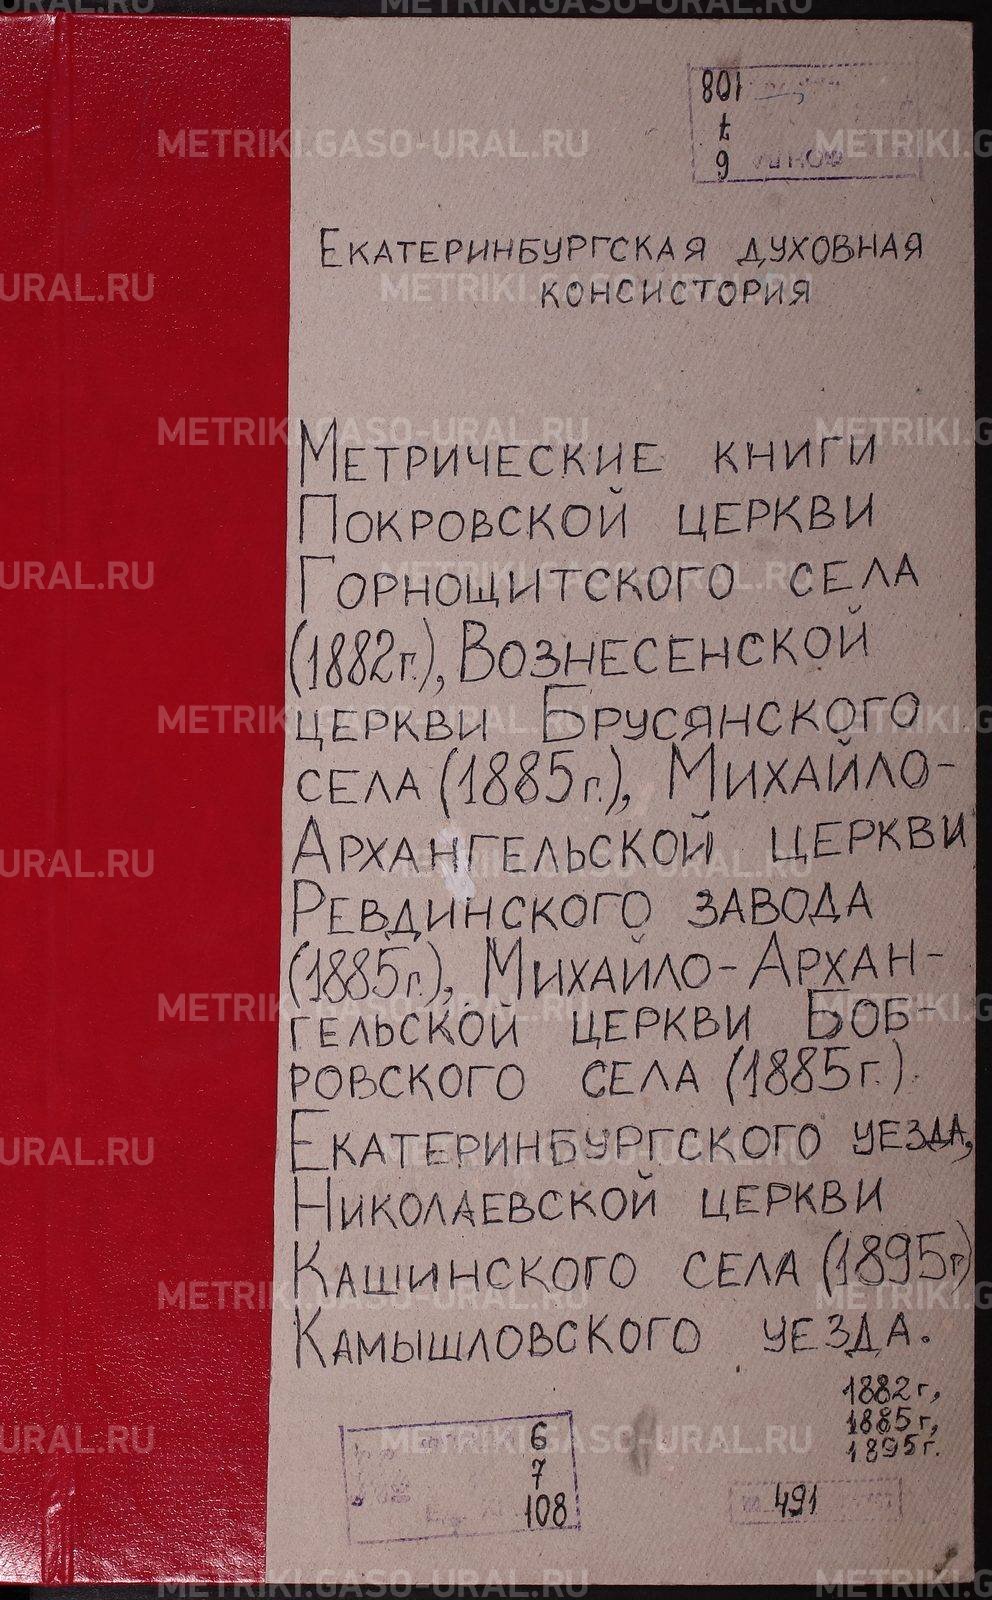 108
7
6
Екатеринбургская духовная
консистория
Метрические книги
Покровской церкви
Горнощитского села
(1882г.), Вознесенской
церкви Брусянского
села (1885г.), Михайло-
Архангельской церкви
Ревдинского завода
(1885г.), Михайло-Архан-
гельской церкви Боб-
ровского села (1885г.)
Екатеринбургского уезда,
Николаевской церкви
Кашинского села (1895г)
Камышловского уезда.
1882г,
1885г,
1895г.
6
7
108
491
METRIKI.GASO-URAL.RU